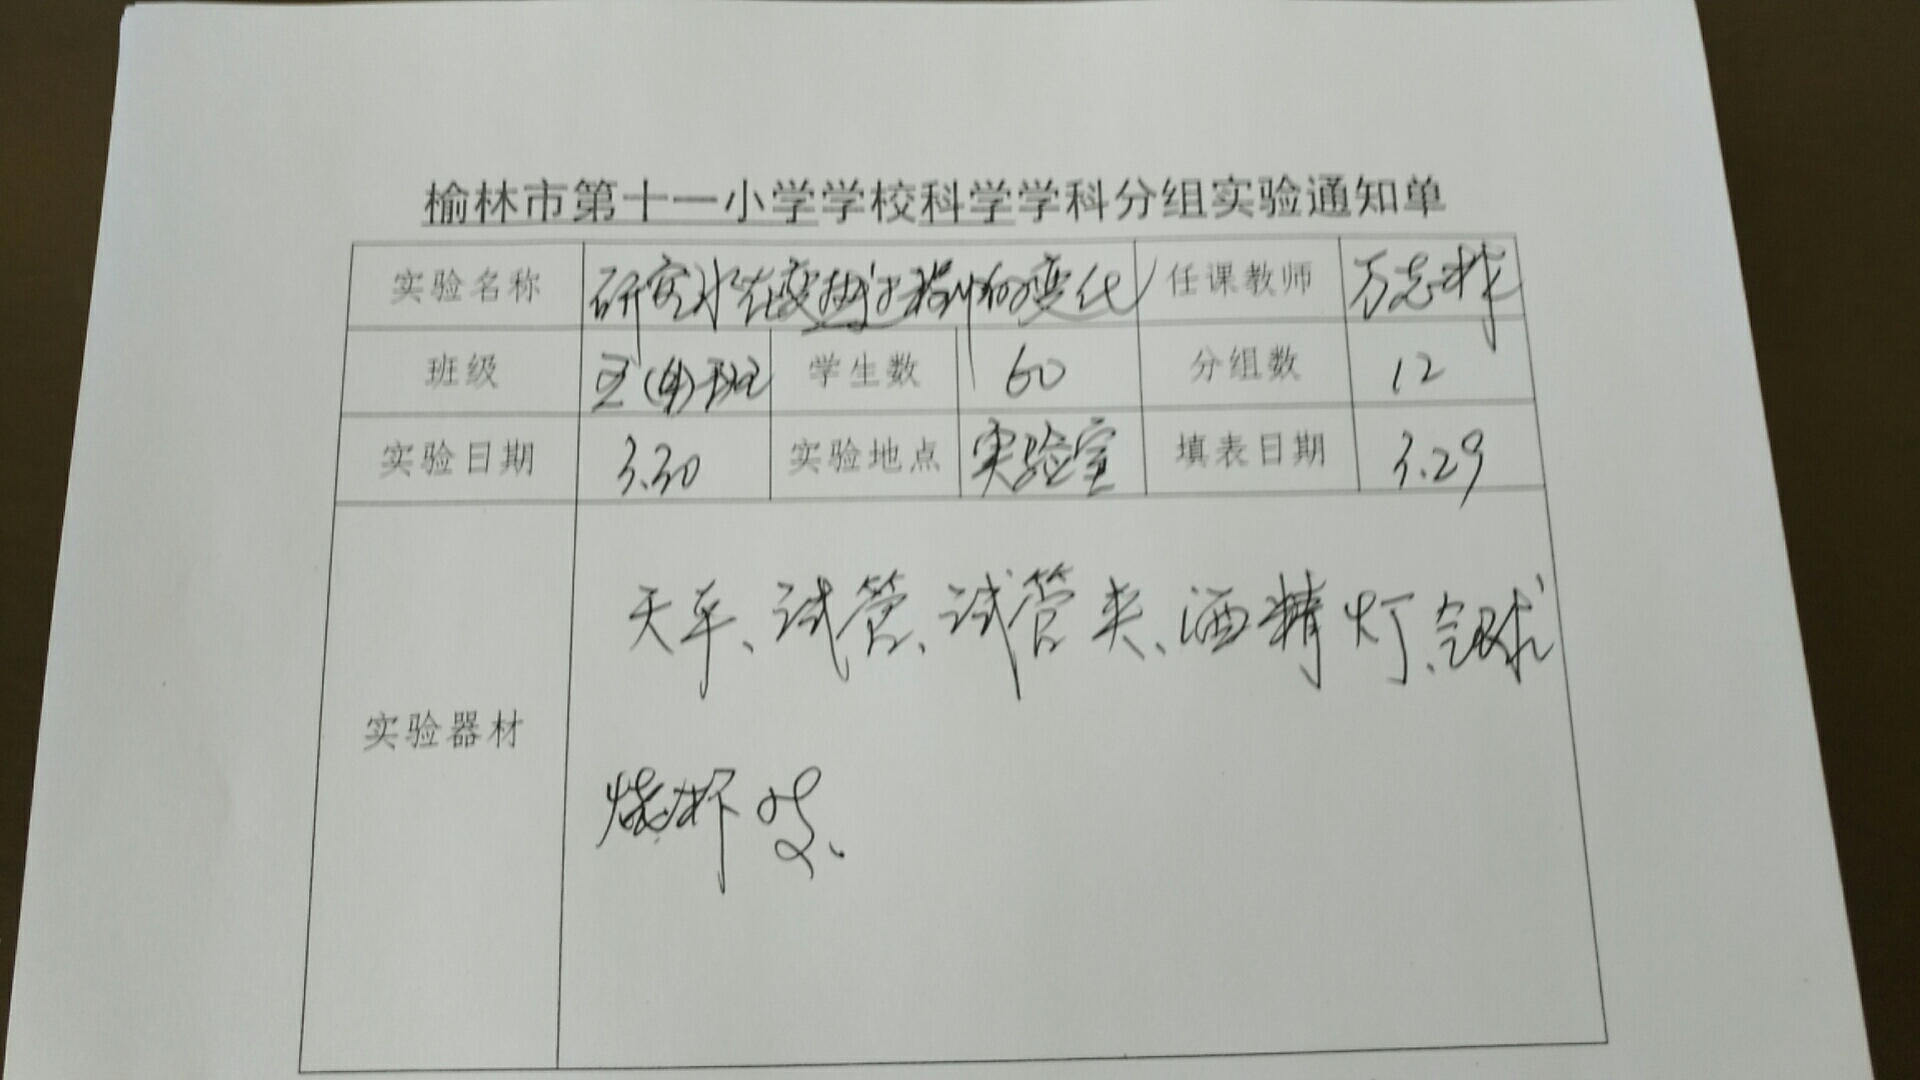 榆林市第十一小学学校科学学科分组实验通知单
实验名称 研究水在变热过程中的变化 任课教师 万志林
班级 五(4)班 学生数 60 分组数 12
实验日期 3.30 实验地点 实验室 填表日期 3.29
天平、试管、试管夹、酒精灯、气球
实验器材
烧杯